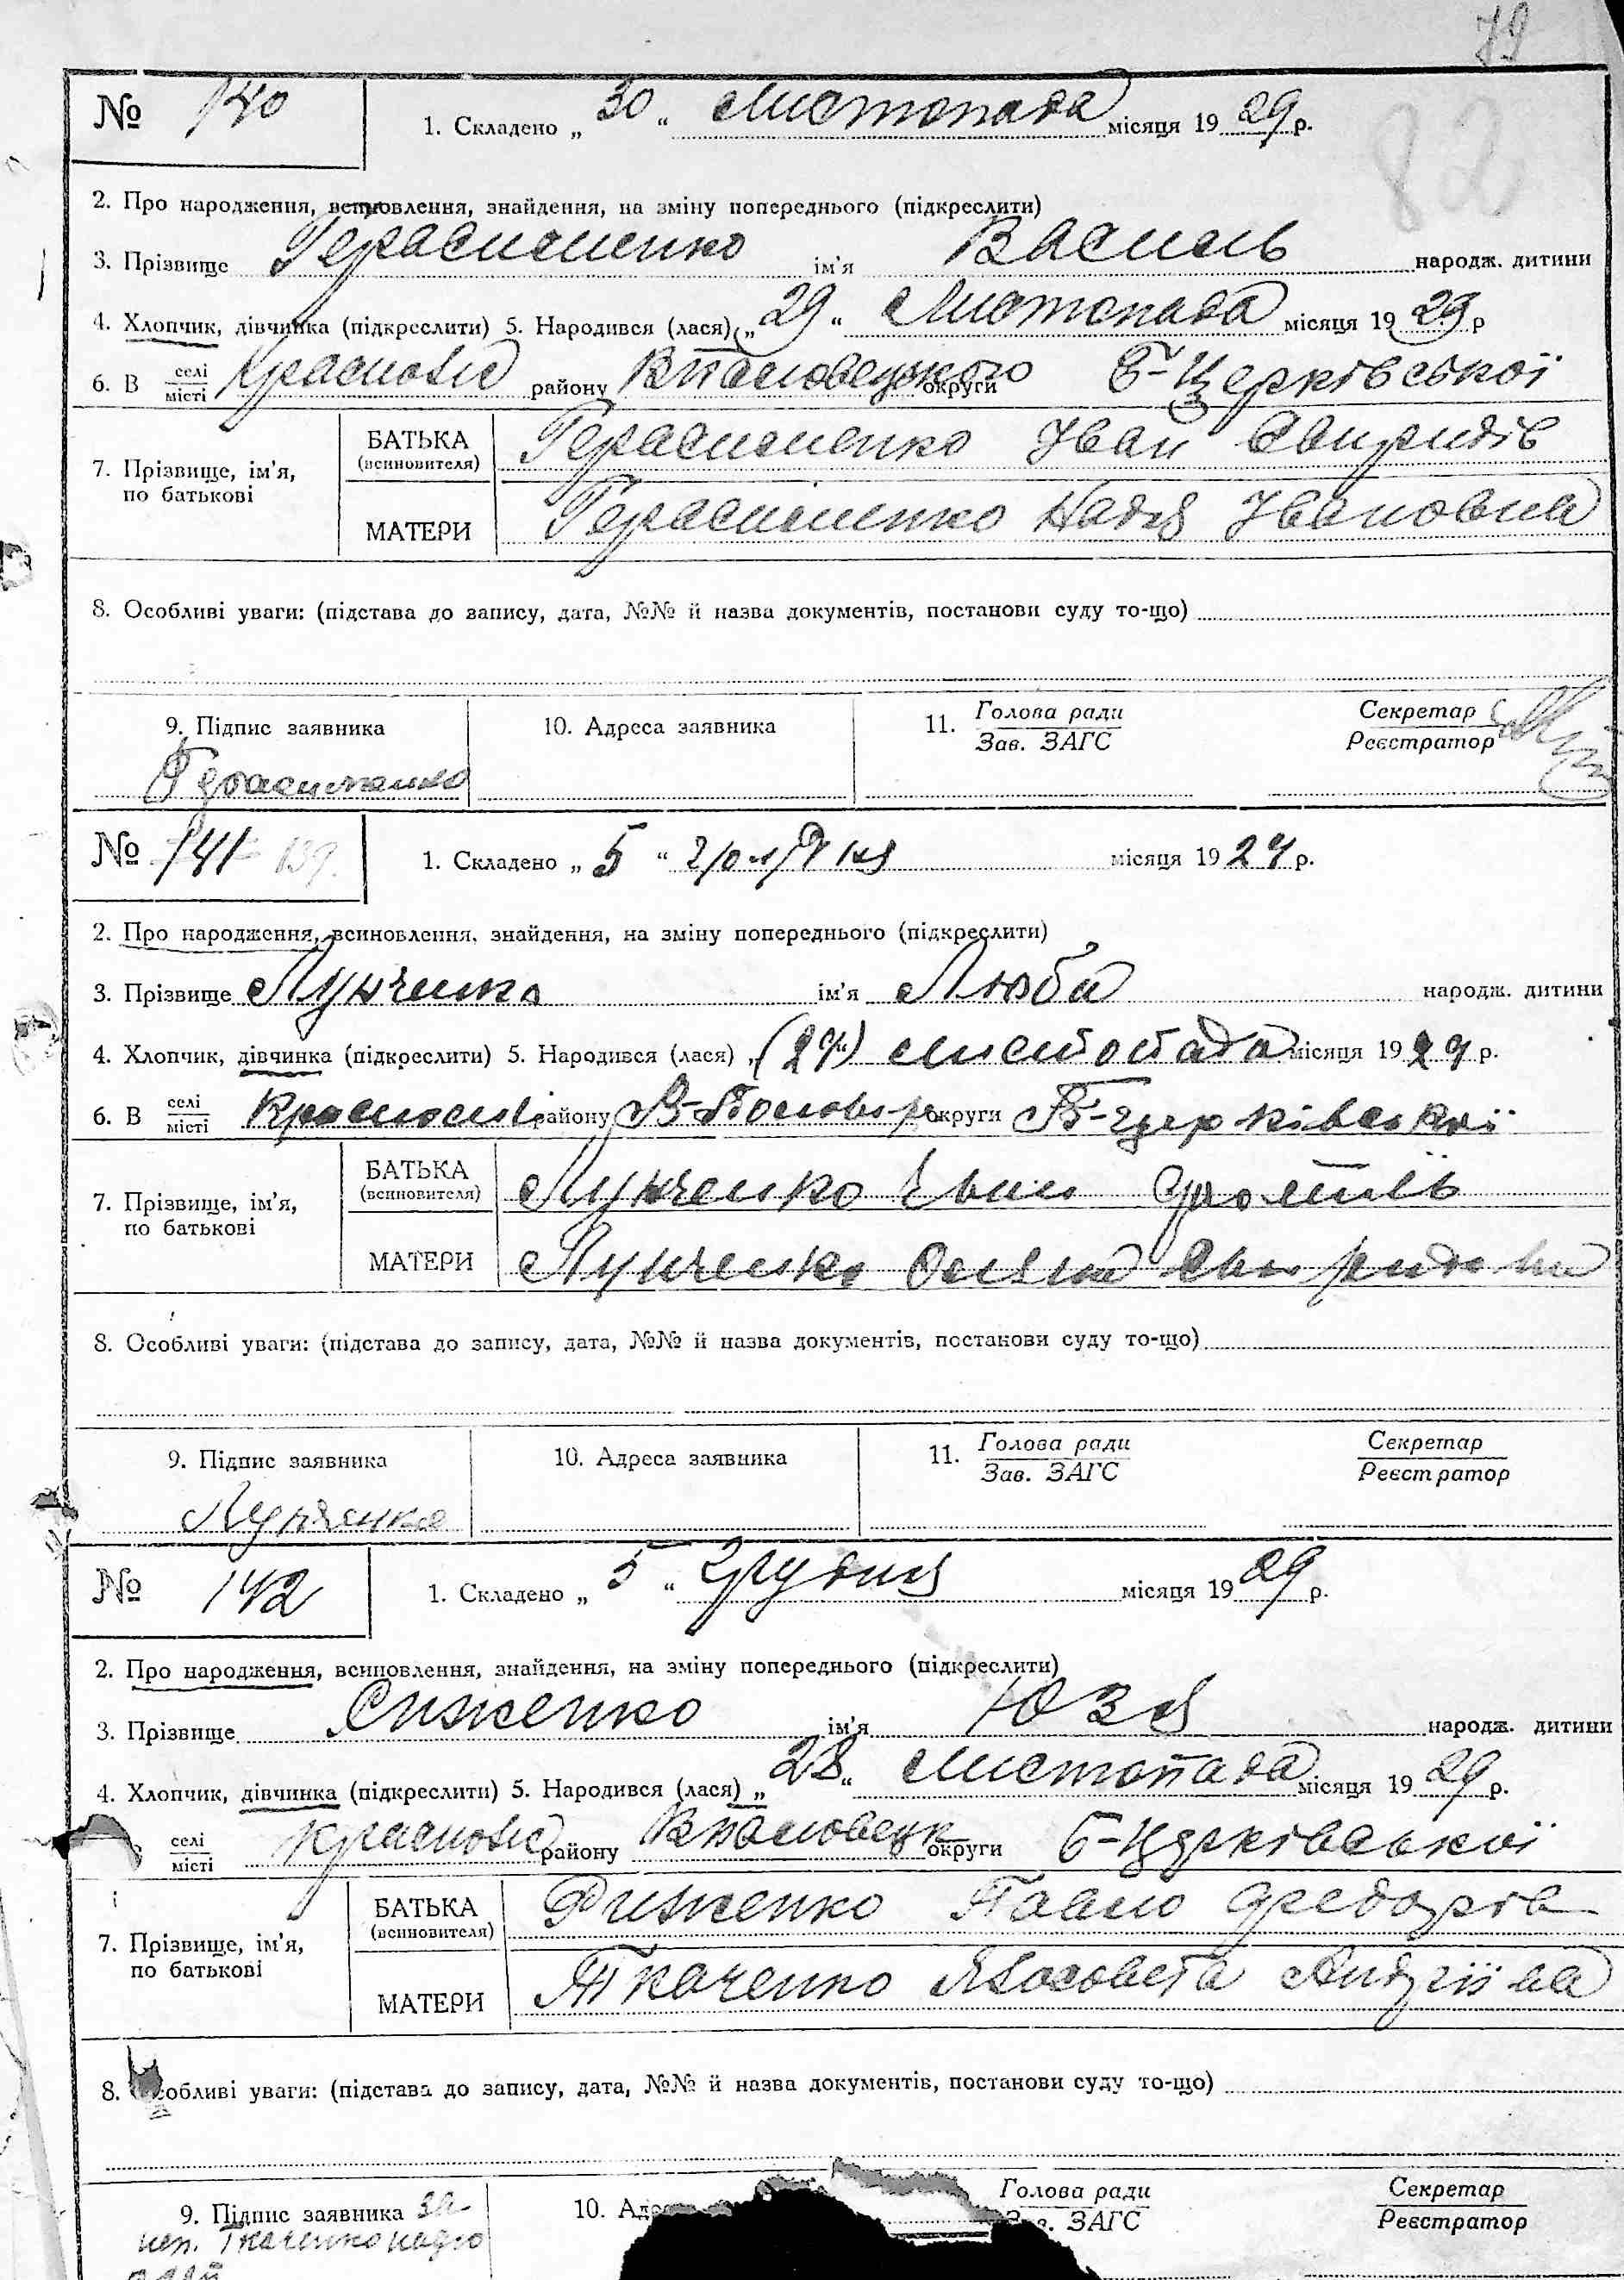 79
82
№ 140
1. Складено „ 30 “ Листопада місяця 19 29 р.
2. Про народження, всиновлення, знайдення, на зміну попереднього (підкреслити)
3. Прізвище Герасименко ім'я Василь народж. дитини
4. Хлопчик, дівчинка (підкреслити) 5. Народився (лася) „ 29 “ Листопада місяця 19 29 р
6. В селі/місті району округи Б-Церківської
7. Прізвище, ім'я, по батькові
БАТЬКА (всиновителя) Герасименко Іван Свиридів
МАТЕРИ Герасименко Надія Івановна
8. Особливі уваги: (підстава до запису, дата, №№ й назва документів, постанови суду то-що)
9. Підпис заявника 10. Адреса заявника 11. Голова ради/Зав. ЗАГС Секретар/Реєстратор
Герасименко
№ 141 139.
1. Складено „ 5 “ грудня місяця 19 29 р.
2. Про народження, всиновлення, знайдення, на зміну попереднього (підкреслити)
3. Прізвище Лунченко ім'я Люба народж. дитини
4. Хлопчик, дівчинка (підкреслити) 5. Народився (лася) „ (29) листопада місяця 19 29 р.
6. В селі/місті району округи Б-церківської
7. Прізвище, ім'я, по батькові
БАТЬКА (всиновителя) Лунченко
МАТЕРИ Лунченко
8. Особливі уваги: (підстава до запису, дата, №№ й назва документів, постанови суду то-що)
9. Підпис заявника 10. Адреса заявника 11. Голова ради/Зав. ЗАГС Секретар/Реєстратор
Лунченко
№ 142
1. Складено „ 5 “ Грудня місяця 19 29 р.
2. Про народження, всиновлення, знайдення, на зміну попереднього (підкреслити)
3. Прізвище ім'я Юзя народж. дитини
4. Хлопчик, дівчинка (підкреслити) 5. Народився (лася) „ 28 “ Листопада місяця 19 29 р.
селі/місті району округи Б-Церківської
7. Прізвище, ім'я, по батькові
БАТЬКА (всиновителя) Риженко Павло Федорів
МАТЕРИ Ткаченко
8. Особливі уваги: (підстава до запису, дата, №№ й назва документів, постанови суду то-що)
9. Підпис заявника за 10. Голова ради/ЗАГС Секретар/Реєстратор
неп. Ткаченко